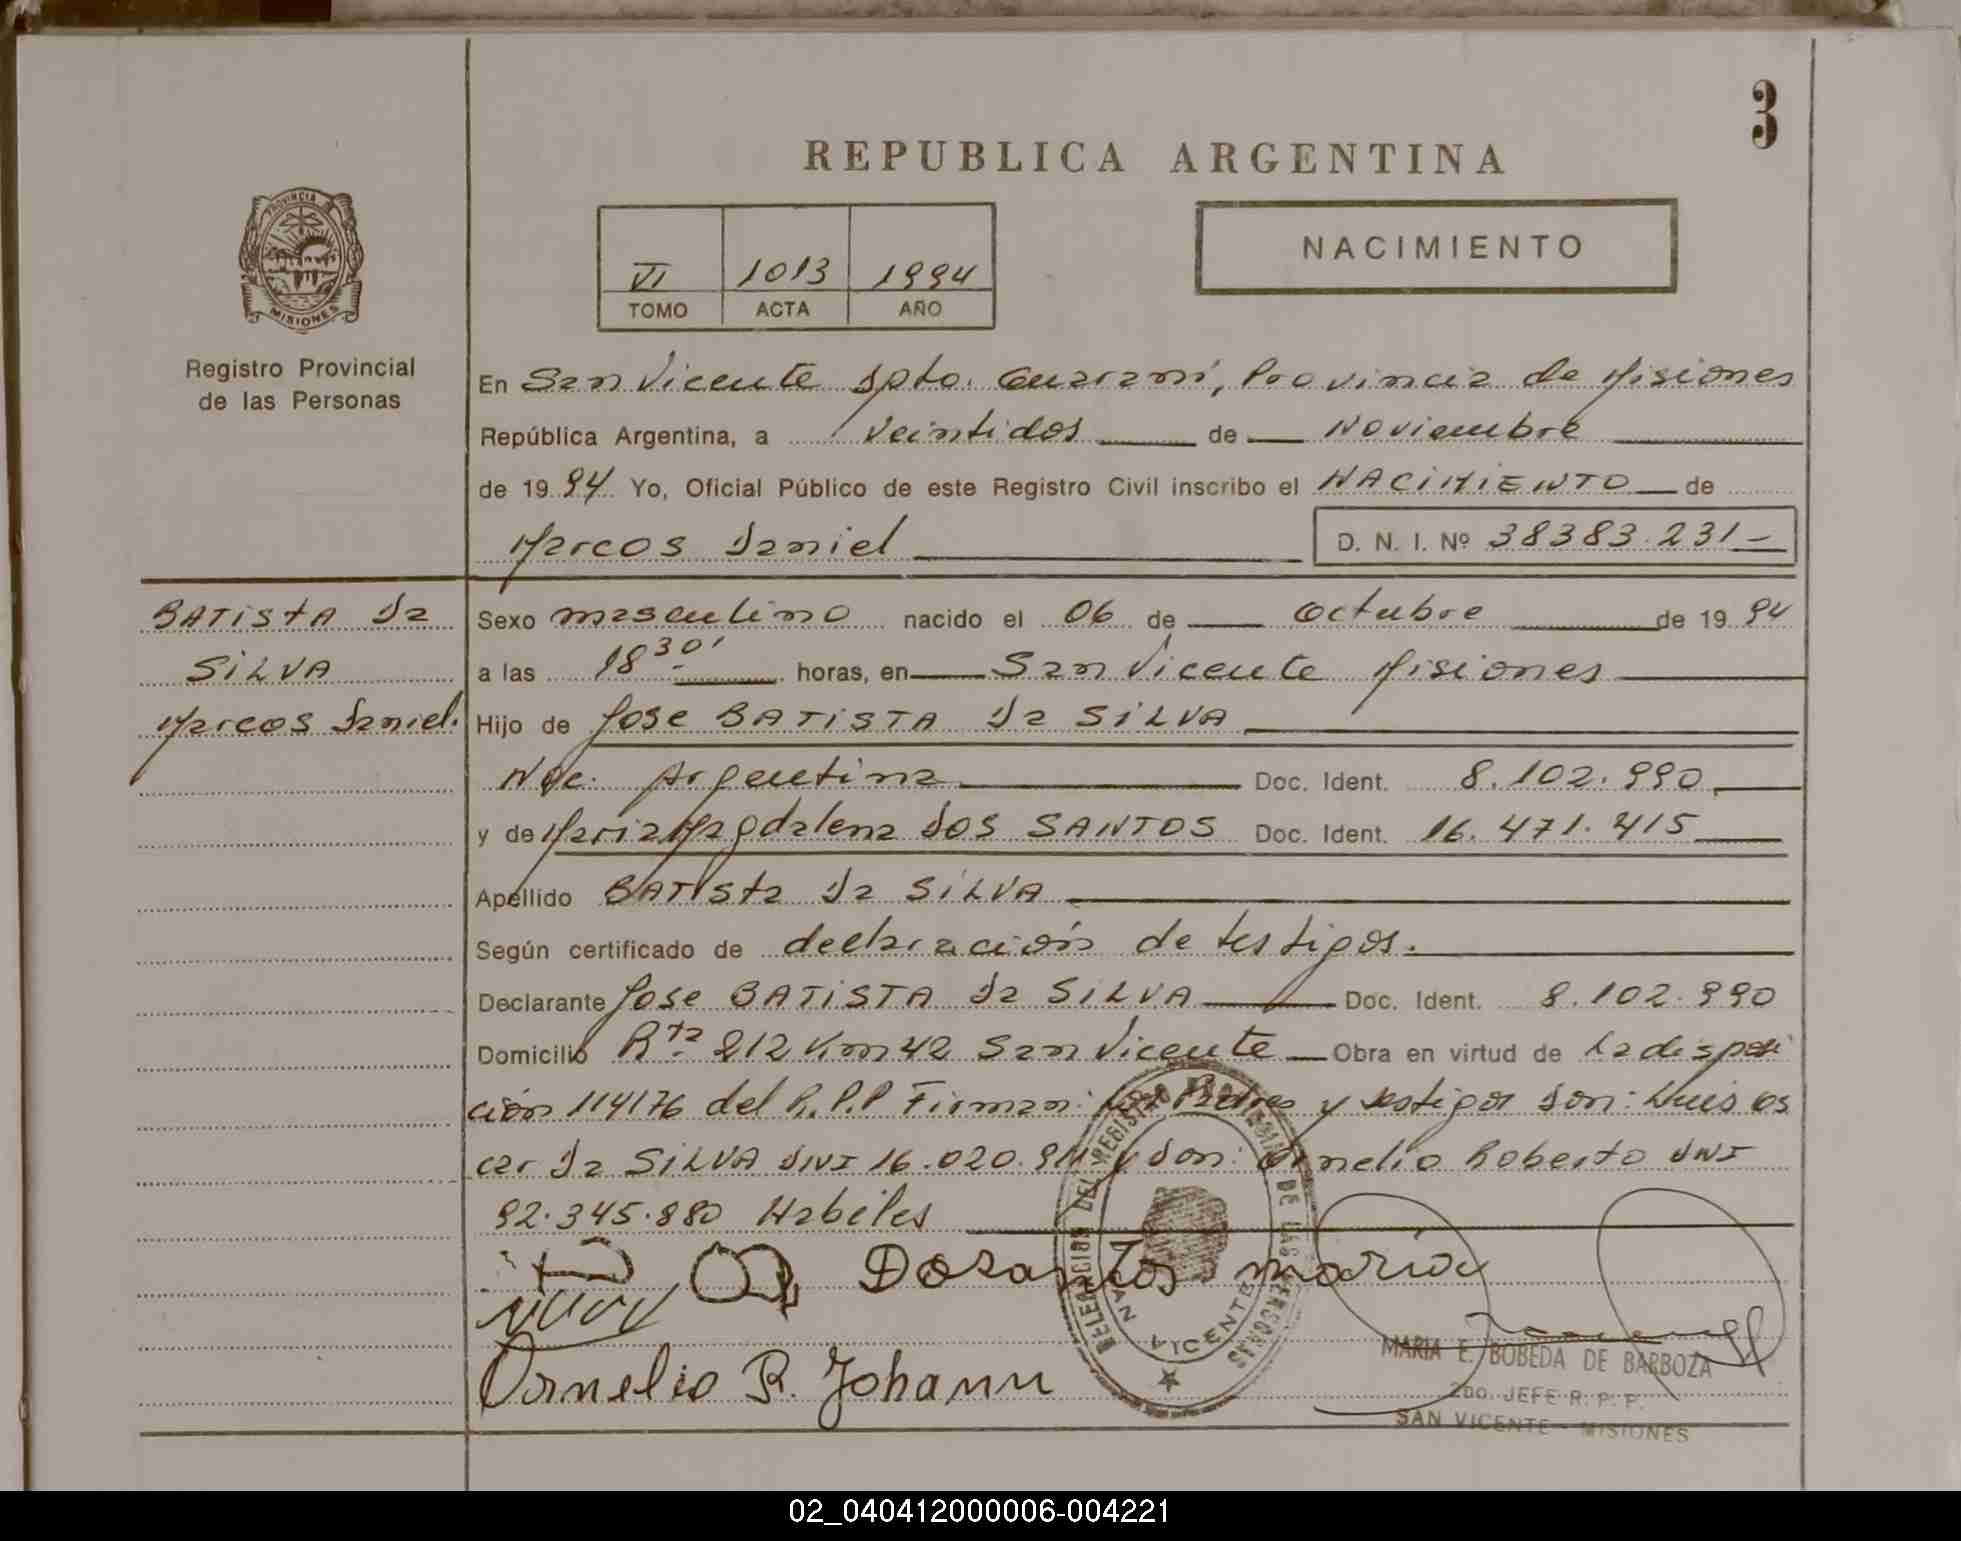 3
REPUBLICA ARGENTINA
PROVINCIA
MISIONES
Registro Provincial
de las Personas
VI 1013 1994
TOMO ACTA AÑO
NACIMIENTO
En San Vicente Dpto. Guaraní, Provincia de Misiones
República Argentina, a veintidos de Noviembre
de 1994 Yo, Oficial Público de este Registro Civil inscribo el NACIMIENTO de
Marcos Daniel
D. N. I. Nº 38383.231-
BATISTA Da
SILVA
Marcos Daniel.
Sexo masculino nacido el 06 de Octubre de 1994
a las 18 30' horas, en San Vicente Misiones
Hijo de Jose BATISTA Da SILVA
Nac. Argentina Doc. Ident. 8.102.990
y de Maria Magdalena DOS SANTOS Doc. Ident. 16.471.415
Apellido BATISTA Da SILVA
Según certificado de declaración de testigos.
Declarante Jose BATISTA Da SILVA Doc. Ident. 8.102.990
Domicilio Rta 212 Km 42 San Vicente Obra en virtud de La disposi
ción 114176 del R.P.P Firman: Los Padres y testigos Don: Luis Os
car Da SILVA DNI 16.020. y Don: Ornelio Roberto DNI
92.345.880 Habiles
Dosantos maria
Ornelio R. Johann
DELEGACION DEL REGISTRO PROVINCIAL DE LAS PERSONAS
SAN VICENTE
MARIA E. BOBEDA DE BARBOZA
2DO. JEFE R. P. P.
SAN VICENTE - MISIONES
02_040412000006-004221